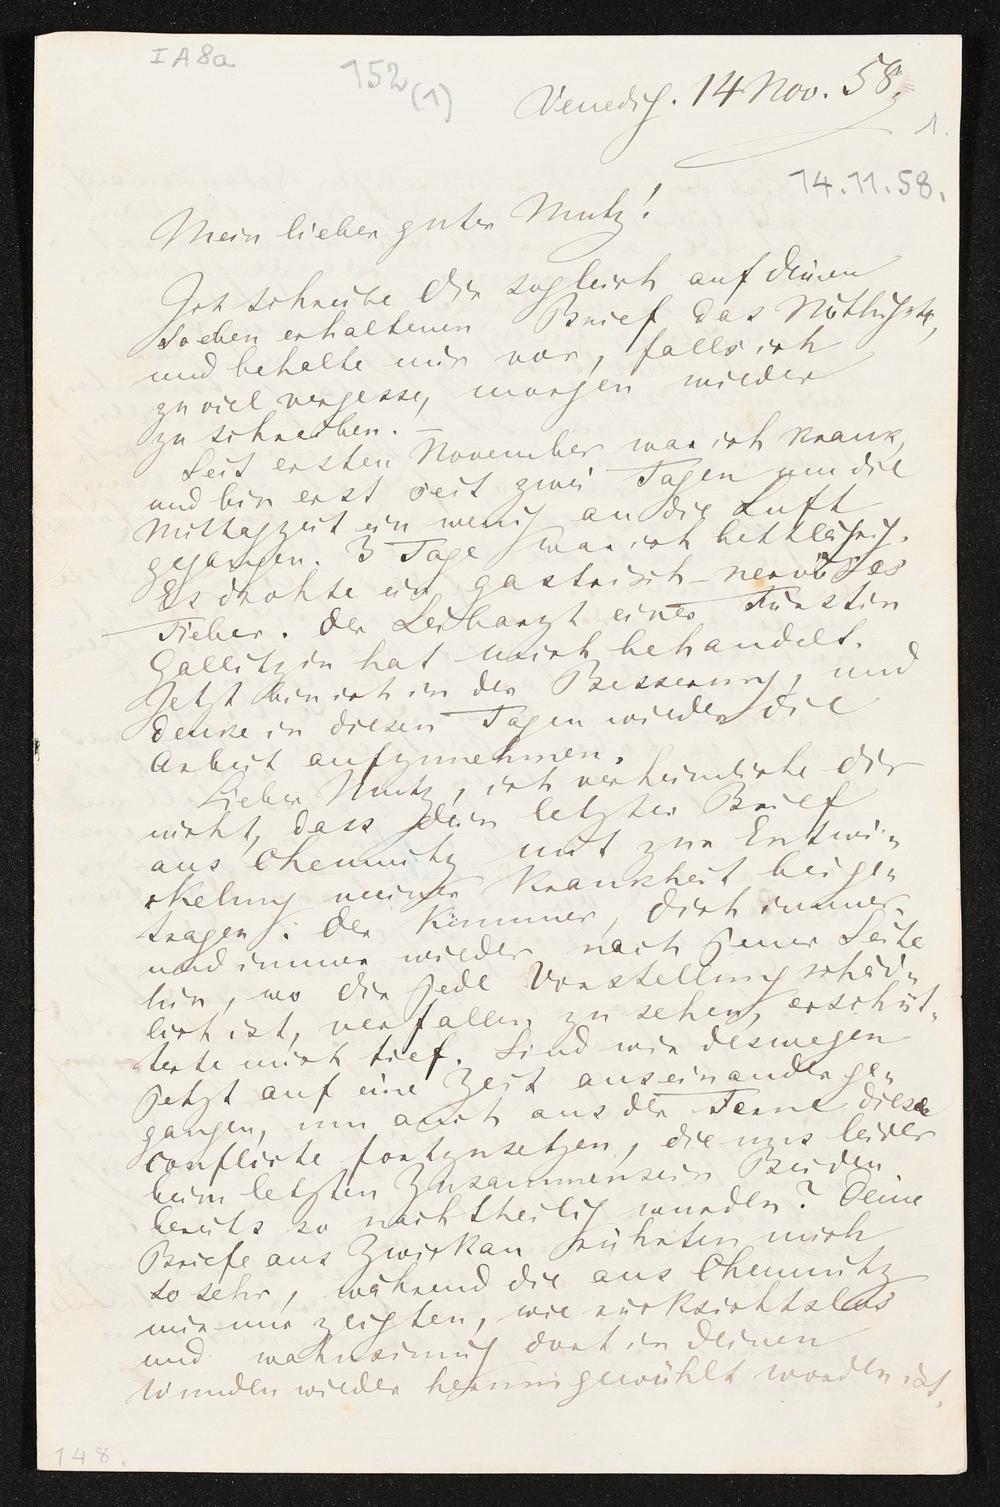 I A 8a
152 (1)
Venedig. 14 Nov. 58.
1.
14.11.58.
Mein lieber guter Mutz!
Ich schreibe Dir sogleich auf deinen
soeben erhaltenen Brief das Nöthigste,
und behalte mir vor, falls ich
zu viel vergesse, morgen wieder
zu schreiben. —
Seit ersten November war ich krank,
und bin erst seit zwei Tagen um die
Mittagzeit ein wenig an die Luft
gegangen. 3 Tage war ich bettlägrig.
Es drohte ein gastrisch-nervöses
Fieber. Der Leibarzt einer Fürstin
Gallitzin hat mich behandelt.
Jetzt bin ich in der Besserung, und
denke in diesen Tagen wieder die
Arbeit aufzunehmen.
Lieber Mutz, ich verheimliche dir
nicht, dass dein letzter Brief
aus Chemnitz mit zur Entwi-
ckelung meiner Krankheit beige-
tragen. Der Kummer, dich immer
und immer wieder nach jener Seite
hin, wo dir jede Vorstellung schäd-
lich ist, verfallen zu sehen, erschüt-
terte mich tief. Sind wir deswegen
jetzt auf eine Zeit auseinanderge-
gangen, um auch aus der Ferne diese
Conflicte fortzusetzen, die uns leider
beim letzten Zusammensein Beiden
bereits so nachtheilig wurden? Deine
Briefe aus Zwickau rührten mich
so sehr, während die aus Chemnitz
mir nur zeigten, wie rücksichtslos
und wahnsinnig dort in deinen
Wunden wieder herumgewühlt worden ist.
148.